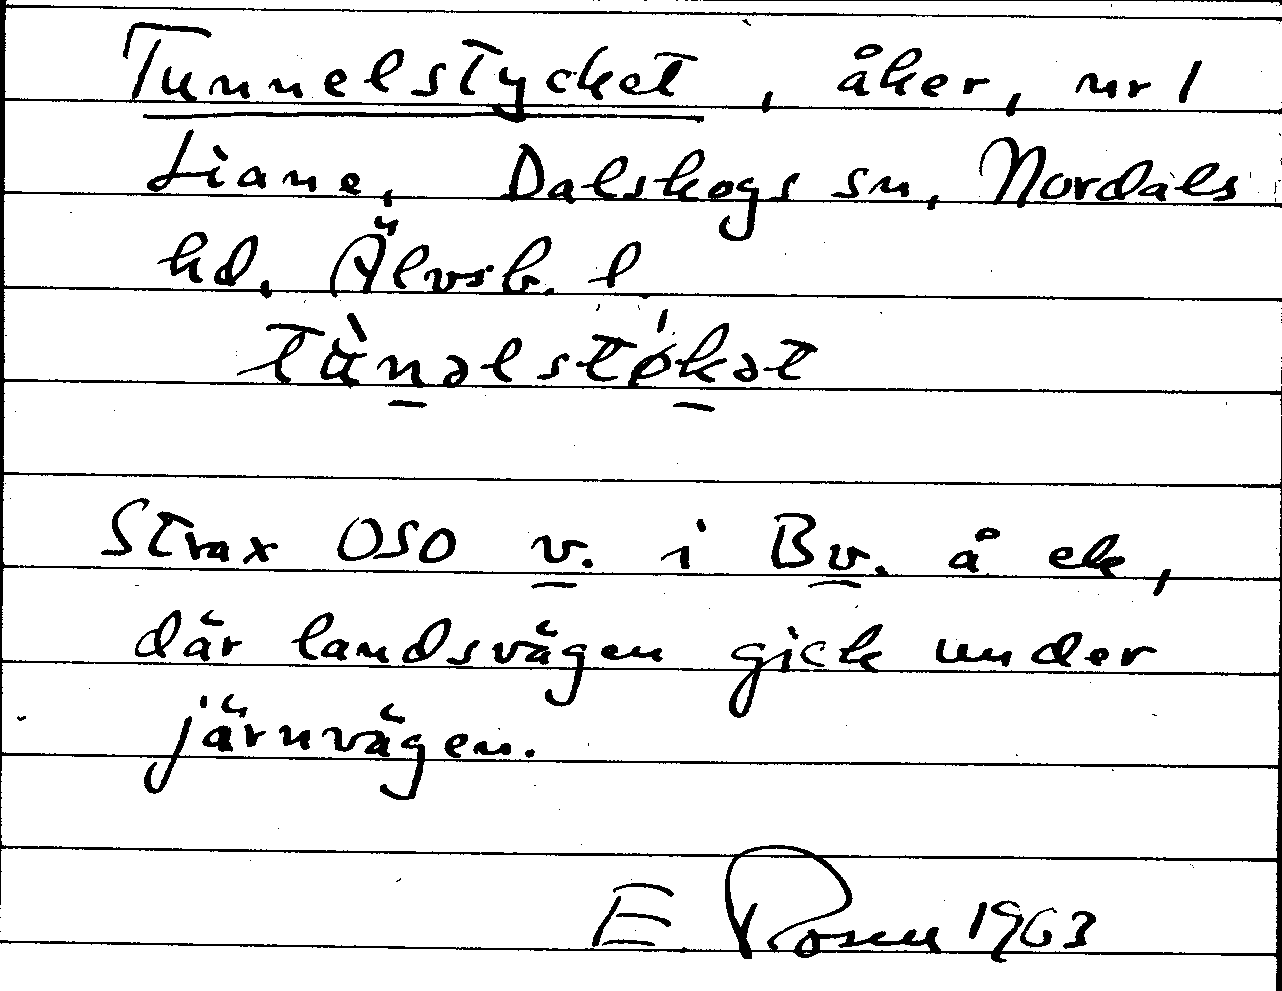 Tunnelstycket, åker, nr 1
Liane, Dalskogs sn, Nordals
hd, Älvsb. l
tùnəlstǿkət
Strax OSO v. i Bv. å ek,
där landsvägen gick under
järnvägen.
E Rosen 1963